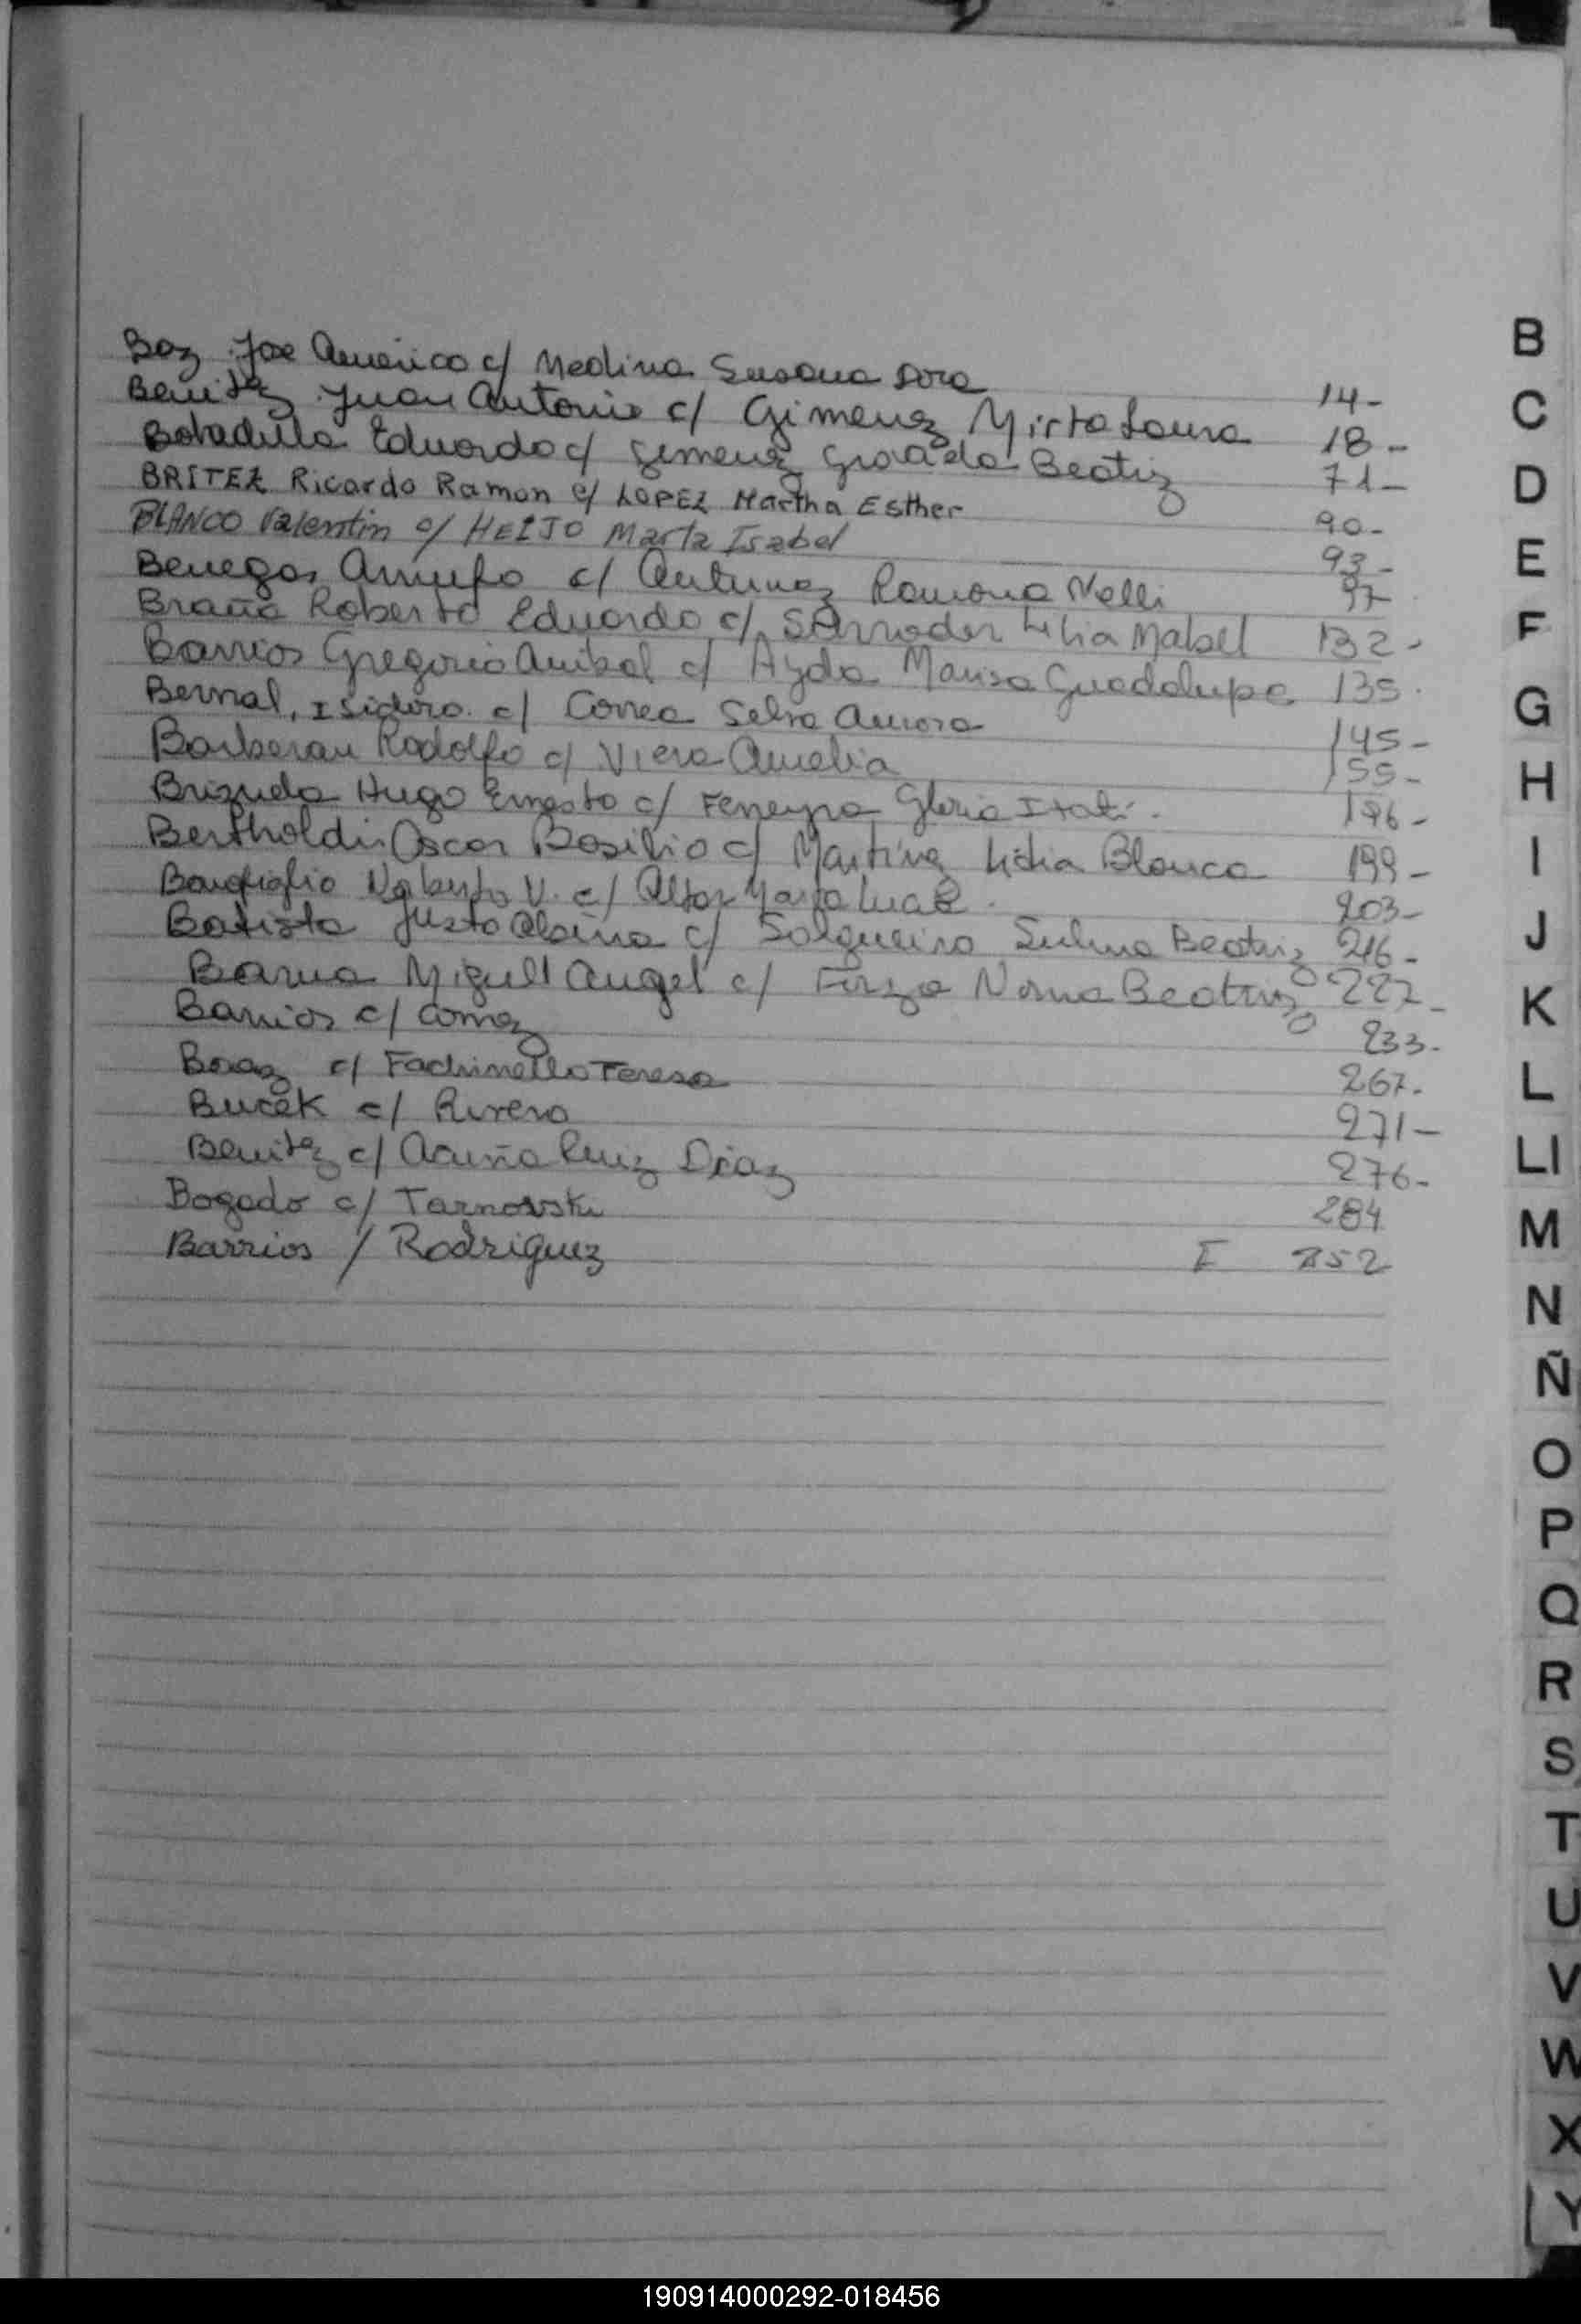 Boz Jose Americo c/ Medina Susana Dora 14-
Benitez Juan Antonio c/ Gimenez Mirta Laura 18-
Bobadilla Eduardo c/ Gimenez Graciela Beatriz 71-
BRITEZ Ricardo Ramon c/ LOPEZ Martha Esther 90-
BLANCO Valentin c/ HEIJO Marta Isabel 93-
Benegas Arnulfo c/ Antunez Ramona Nelli 97-
Braña Roberto Eduardo c/ Lilia Mabel 132-
Barrios Gregorio Anibal c/ Ayda Marisa Guadalupe 135.
Bernal, Isidoro c/ Correa Selva Aurora 145-
Barberan Rodolfo c/ Viera Amelia 155-
Brizuela Hugo Ernesto c/ Ferreyra Gloria Itati. 196-
Bertholdi Oscar Bosilio c/ Martinez Lidia Blanca 199-
c/ 203-
Batista Justo c/ Salgueiro Sulma Beatriz 216-
Miguel Angel c/ Norma Beatriz 227-
Barrios c/ Gomez 233-
c/ Fachinello Teresa 267.
Bucek c/ Rivero 271-
Benitez c/ Acuña Ruiz Diaz 276-
Bogado c/ Tarnovski 284
Barrios / Rodriguez I 252
B
C
D
E
F
G
H
I
J
K
L
Ll
M
N
Ñ
O
P
Q
R
S
T
U
V
W
X
Y
190914000292-018456